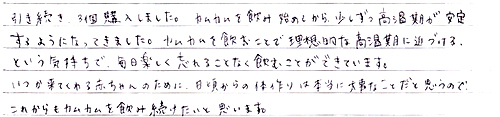 引き続き、3個購入しました。カムカムを飲み始めてから、少しずつ高温期が安定
するようになってきました。カムカムを飲むことで理想的な高温期に近づける、
という気持ちで、毎日楽しく忘れることなく飲むことができています。
いつか来てくれる赤ちゃんのために、日頃からの体作りは本当に大事なことだと思うので
これからもカムカムを飲み続けたいと思います。